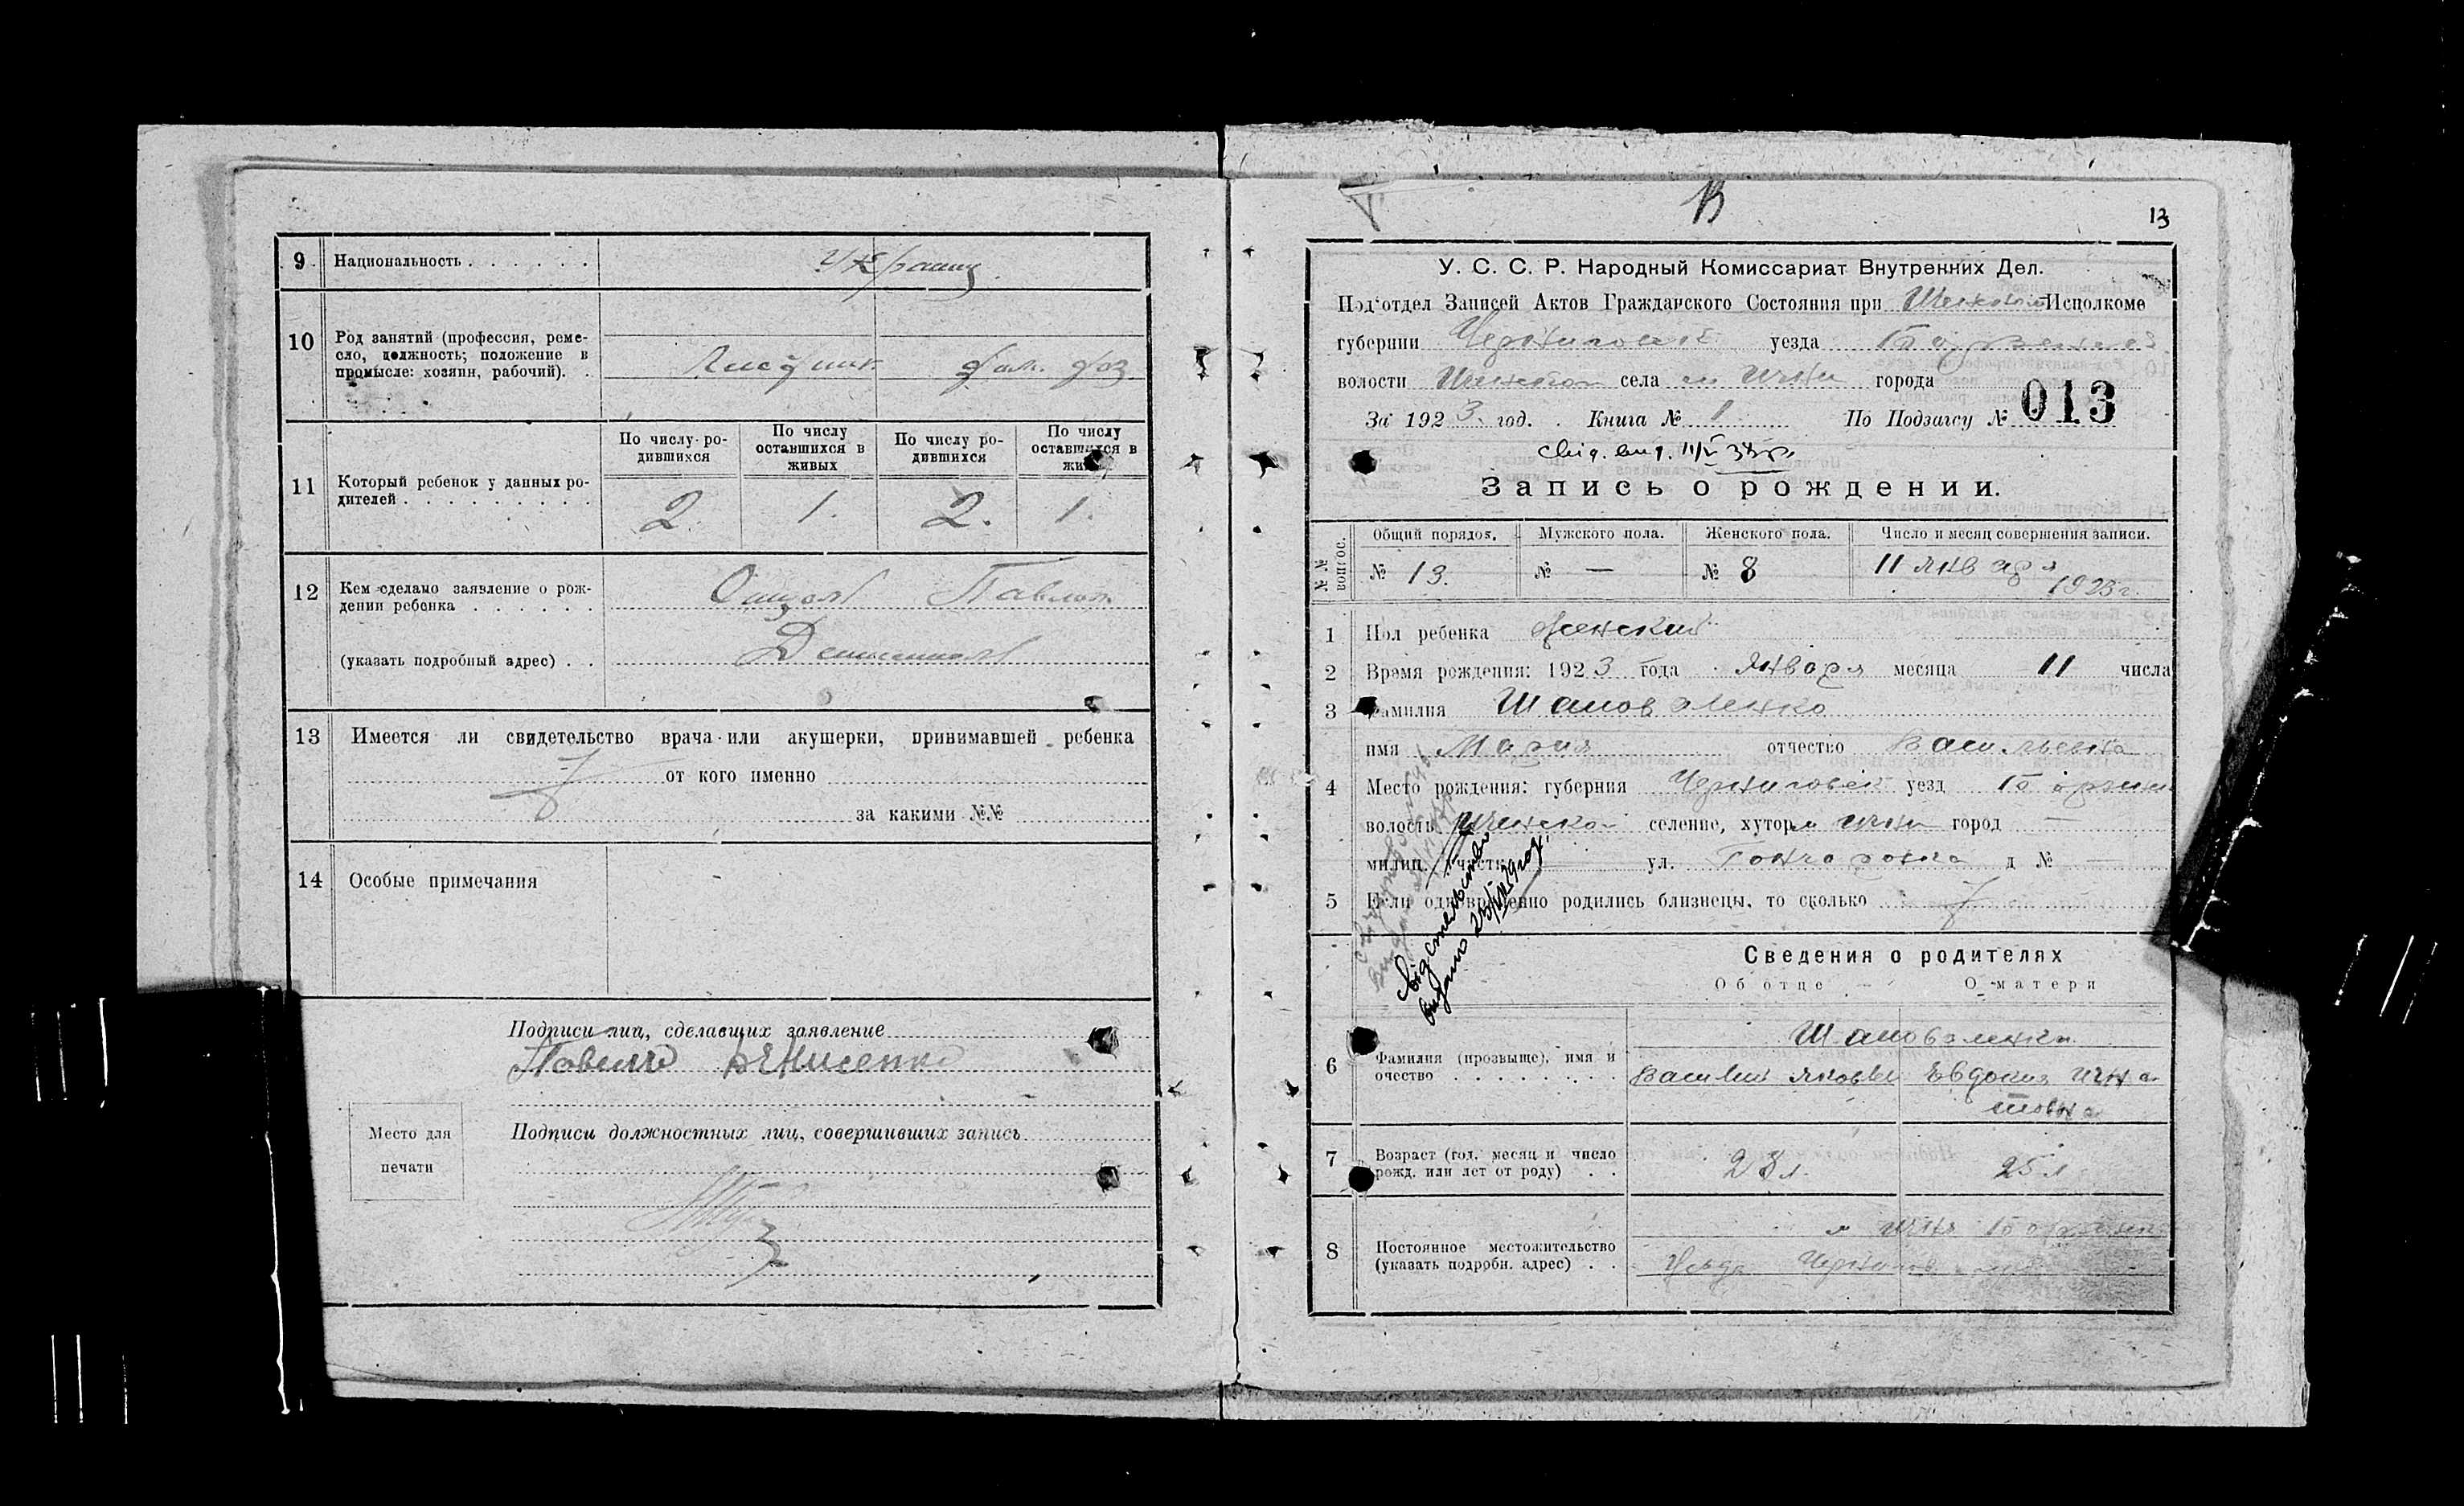 9 Национальность . . . . . .
10 Род занятий (профессия, реме-
сло, должность; положение в
промысле: хозяин, рабочий). .
дом. хоз
11 Который ребенок у данных ро-
дителей . . . . . . . . .
По числу ро-
дившихся
По числу
оставшихся в
живых
По числу ро-
дившихся
По числу
оставшихся в
2. 1. 2. 1.
12 Кем сделано заявление о рож-
дении ребенка . . . . . .
Отцом Павлом
(указать подробный адрес) . .
Денисенком
13 Имеется ли свидетельство врача или акушерки, принимавшей ребенка
от кого именно
за какими №№
14 Особые примечания
Подписи лиц, сделавших заявление
Павело Денисенко
Место для
печати
Подписи должностных лиц, совершивших запись
В
13
У. С. С. Р. Народный Комиссариат Внутренних Дел.
Под'отдел Записей Актов Гражданского Состояния при Исполкоме
губернии Черниговской уезда
волости Ичнской села м Ични города
За 1923. год. Книга № 1 По Подзагсу № 013
Запись о рождении.
№№ вопрос.
Общий порядок. Мужского пола. Женского пола. Число и месяц совершения записи.
№ 13. № — № 8 11 января
1923 г.
1 Пол ребенка женский
2 Время рождения: 1923 года Января месяца 11 числа
3 Фамилия Шаповаленко
имя Мария отчество Васильевна
4 Место рождения: губерния Черниговск уезд Борзни
волость Ичнской селение, хутор м Ични город —
милиц. участк ул. Гончаровка д №
5 Если одновременно родились близнецы, то сколько
Свідетельство
видано
Сведения о родителях
Об отце О матери
6 Фамилия (прозвище), имя и
очество . . . . . . . .
Шаповаленки
Василий Яковлев Евдокия Игна
товна
7 Возраст (год, месяц и число
рожд. или лет от роду) . .
28 л 25 л
8 Постоянное местожительство
(указать подробн. адрес) . .
м Ичня